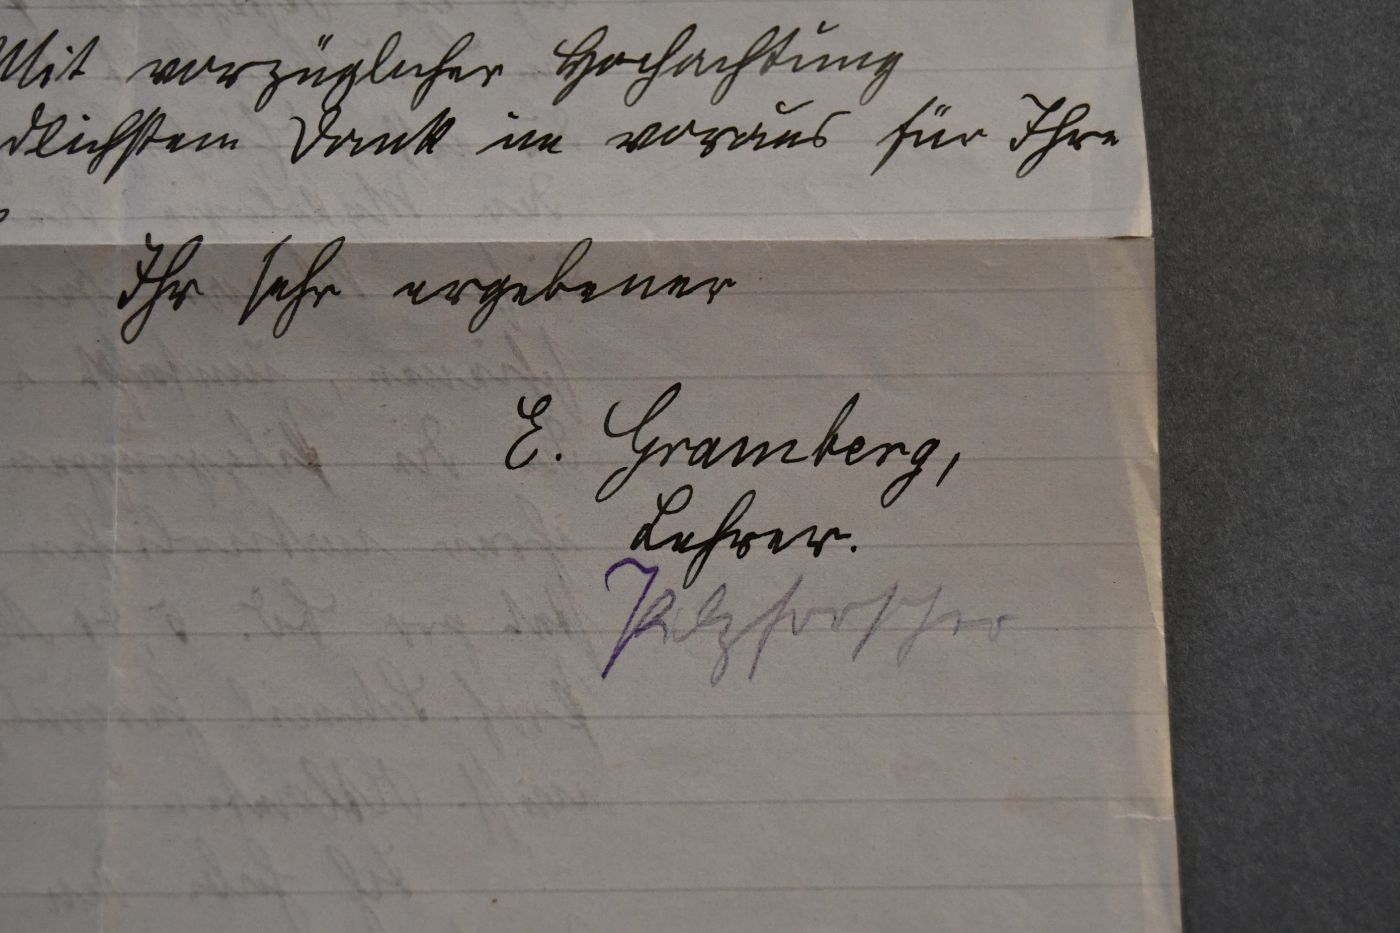 Mit vorzüglicher Hochachtung
dlichstem Dank im voraus für Ihre
Ihr sehr ergebener
E. Gramberg,
Lehrer.
Pilzforscher